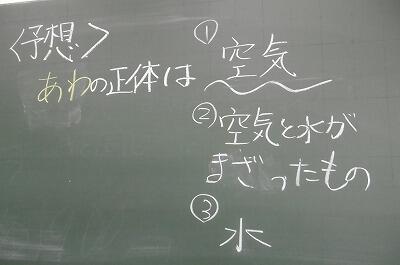 〈予想〉
あわの正体は
① 空気
② 空気と水が
まざったもの
③ 水